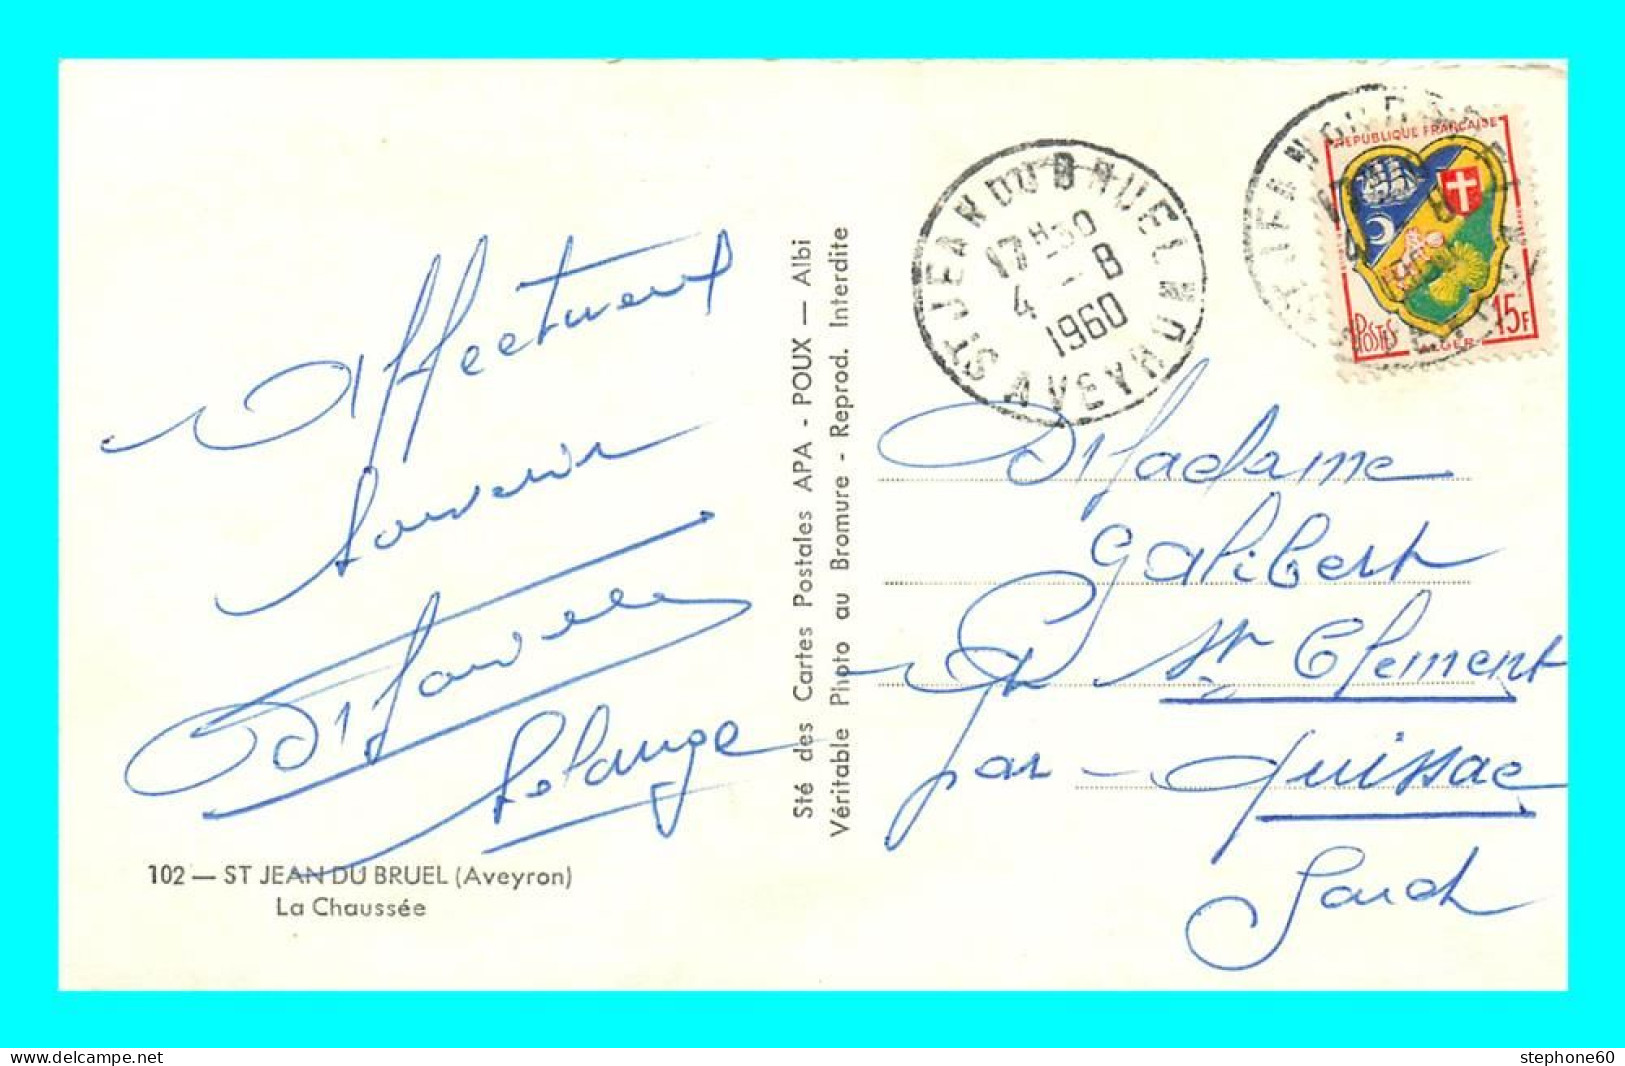 Affectueux
Souvenir
Delauge
102 — ST JEAN DU BRUEL (Aveyron)
La Chaussée
Sté des Cartes Postales APA - POUX — Albi
Véritable Photo au Bromure - Reprod. Interdite
ST JEAN DU BRUEL
17H30
4 - 8
1960
AVEYRON
REPUBLIQUE FRANÇAISE
POSTES
ALGER
15F
Madame
Galibert
St Clement
par - Quissac
Gard
stephone60